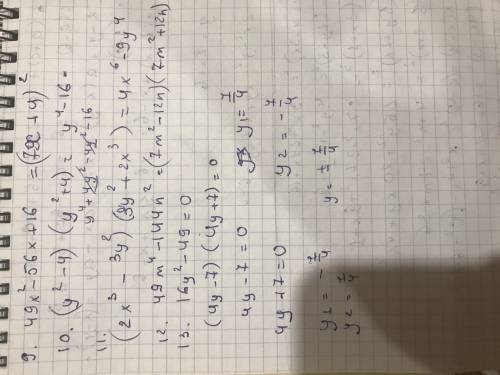 9. 49x²-56x+16 =(7x+4)²
10. (y²-4) (y²+4)= y⁴-16=
y⁴+4y²-4y²-16
11.
(2x³ - 3y²) (3y²+2x³) = 4x⁶-9y⁴
12. 49m⁴-144n² =(7m²-12n)(7m²+12n)
13. 16y²-49=0
(4y-7) (4y+7)=0
4y-7=0 y1=7/4
4y+7=0 y2=-7/4
y1= -7/4 y=±7/4
y2=7/4